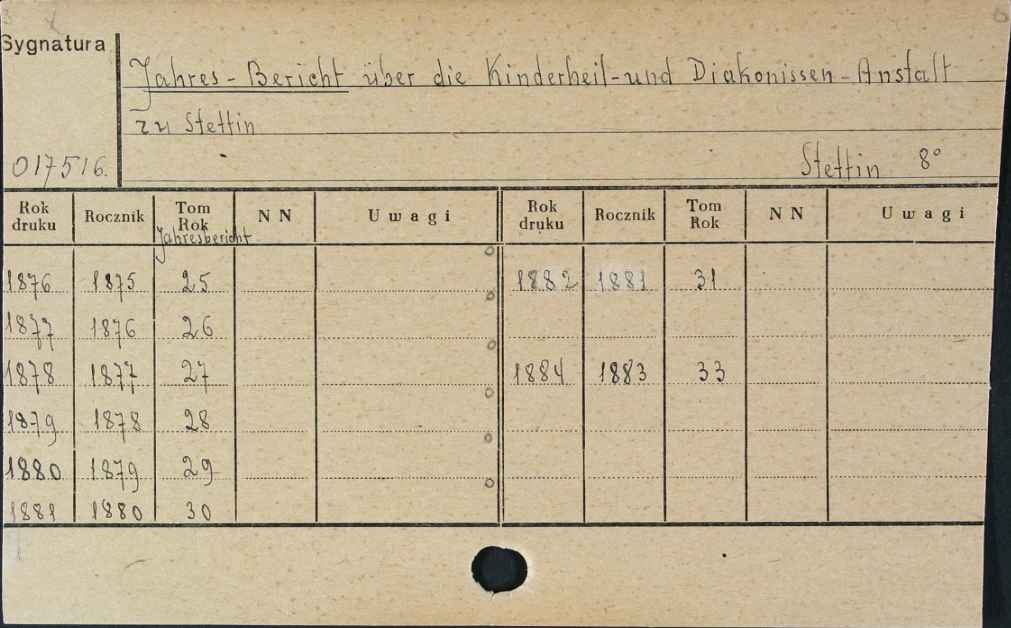 Sygnatura
Jahres-Bericht über die Kinderheil-und Diakonissen-Anstalt
zu Stettin
017516. Stettin 8°
Rok druku Rocznik Tom Rok NN Uwagi Rok druku Rocznik Tom Rok NN Uwagi
Jahresbericht
1876 1875 25 1882 1881 31
1877 1876 26
1878 1877 27 1884 1883 33
1879 1878 28
1880 1879 29
1881 1880 30